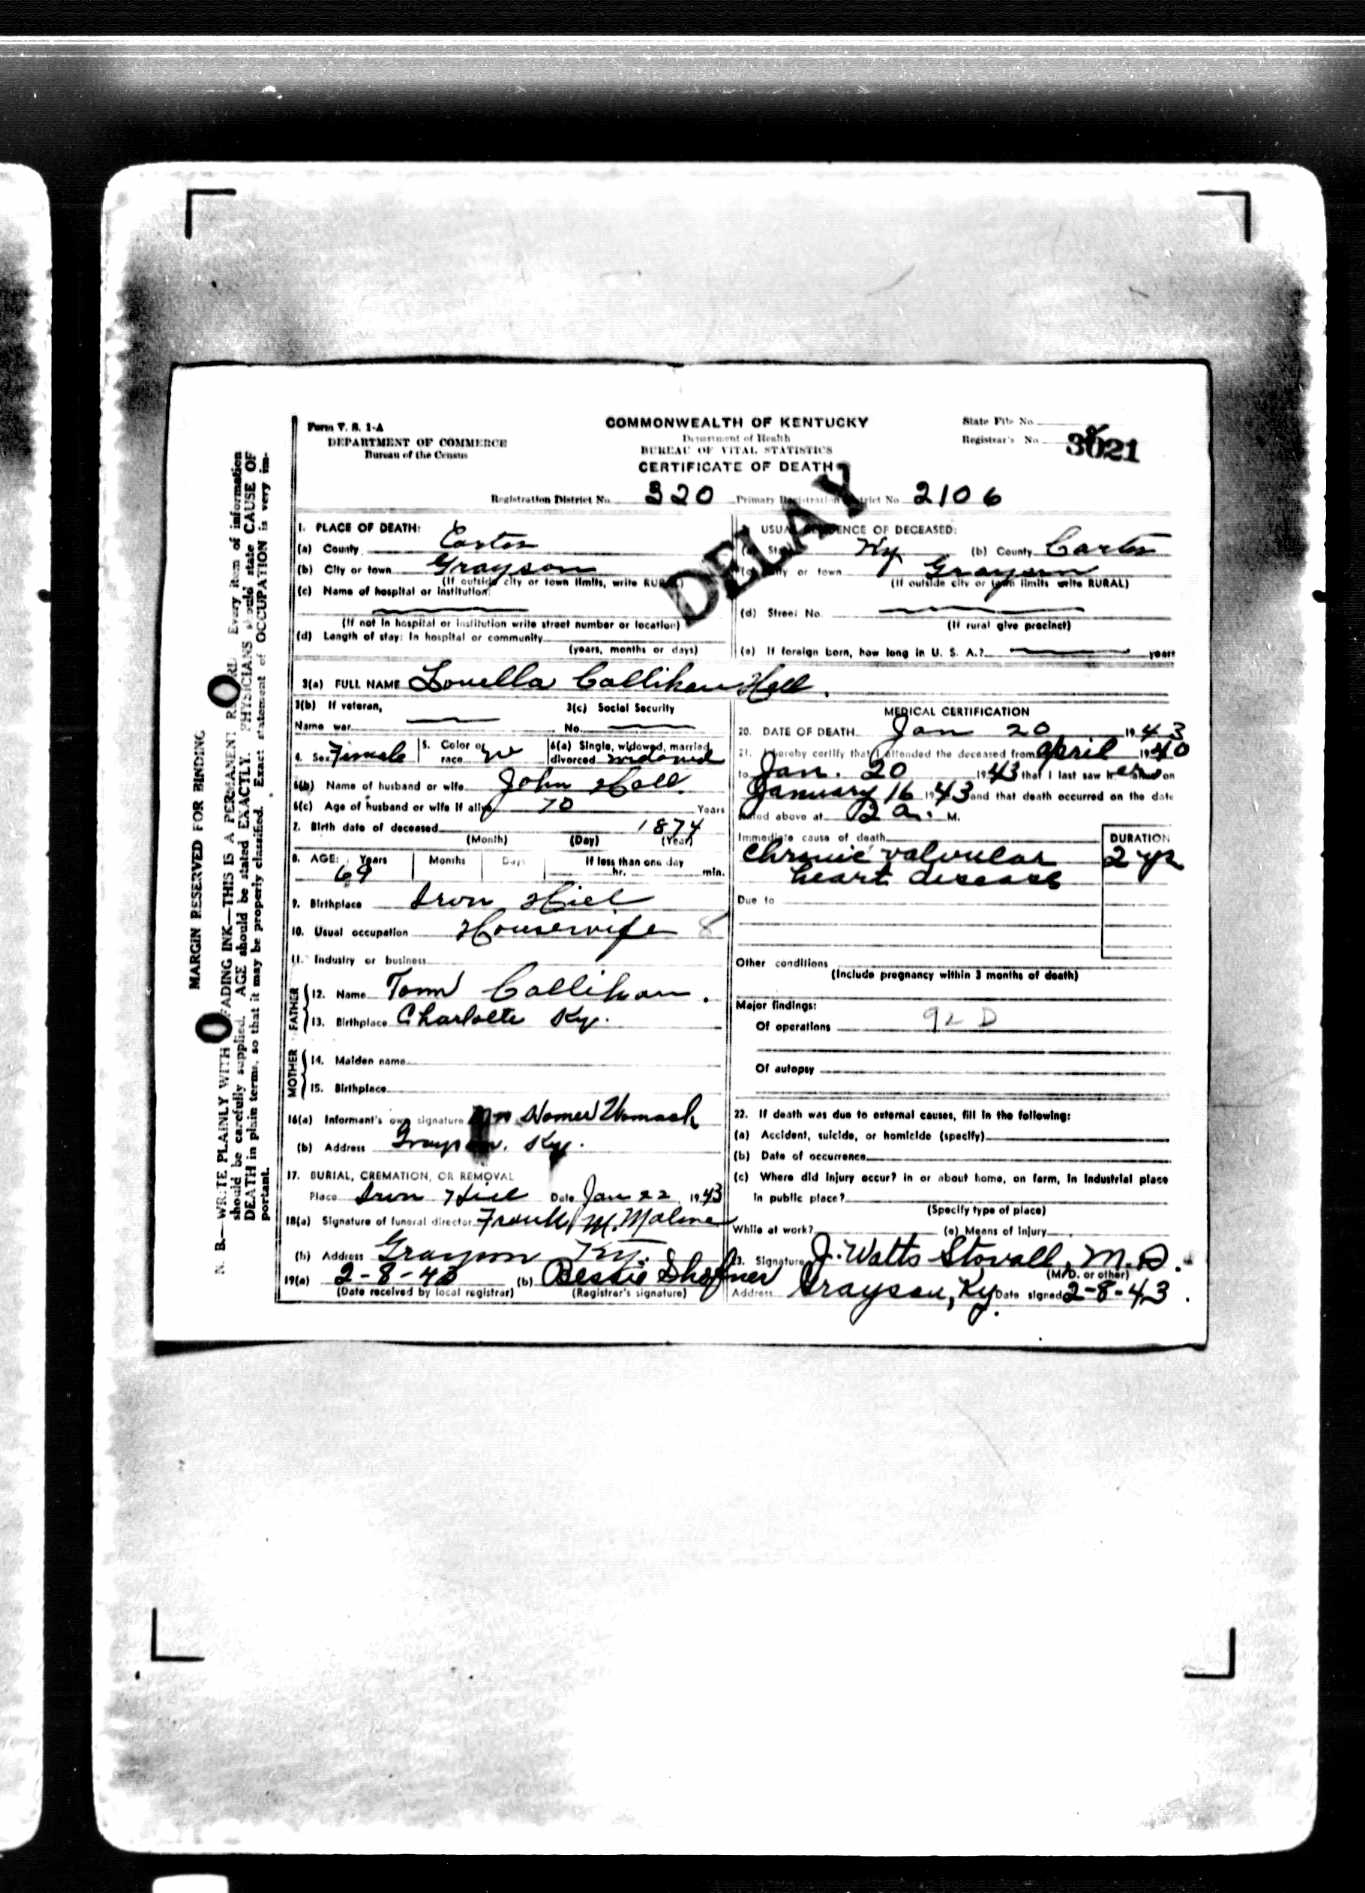 Form V. S. 1-A
DEPARTMENT OF COMMERCE
Bureau of the Census
COMMONWEALTH OF KENTUCKY
Department of Health
BUREAU OF VITAL STATISTICS
CERTIFICATE OF DEATH
State File No.
Registrar's No. 3021
DELAY
Registration District No. 320 Primary Registration District No. 2106
1. PLACE OF DEATH:
(a) County Carter
(b) City or town Grayson
(If outside city or town limits, write RURAL)
(c) Name of hospital or institution:
(If not in hospital or institution write street number or location)
(d) Length of stay: In hospital or community
(years, months or days)
2. USUAL RESIDENCE OF DECEASED:
(a) State Ky (b) County Carter
(c) City or town Grayson
(If outside city or town limits write RURAL)
(d) Street No.
(If rural give precinct)
(e) If foreign born, how long in U. S. A.? years
3(a) FULL NAME Louella Callihan Hall.
3(b) If veteran,
Name war
3(c) Social Security
No.
4. Sex Female 5. Color or race W 6(a) Single, widowed, married, divorced widowed
6(b) Name of husband or wife John Hall.
6(c) Age of husband or wife if alive 70 Years
7. Birth date of deceased 1874
(Month) (Day) (Year)
8. AGE: Years Months Days If less than one day
69 hr. min.
9. Birthplace Iron Hill
10. Usual occupation Housewife 8
11. Industry or business
FATHER
12. Name Tom Callihan.
13. Birthplace Charlotte Ky.
MOTHER
14. Maiden name
15. Birthplace
16(a) Informant's own signature Homer Womack
(b) Address Grayson, Ky.
17. BURIAL, CREMATION, OR REMOVAL
Place Iron Hill Date Jan 22, 1943
18(a) Signature of funeral director Frank M. Malone
(b) Address Grayson Ky.
19(a) 2-8-43 (b) Bessie Shafner
(Date received by local registrar) (Registrar's signature)
MEDICAL CERTIFICATION
20. DATE OF DEATH Jan 20 1943
21. I hereby certify that I attended the deceased from April 1940
to Jan. 20 1943 that I last saw her alive on
January 16 1943 and that death occurred on the date
stated above at 2 a. M.
Immediate cause of death DURATION
chronic valvular 2 yr
heart disease
Due to
Other conditions
(Include pregnancy within 3 months of death)
Major findings:
Of operations 92 D
Of autopsy
22. If death was due to external causes, fill in the following:
(a) Accident, suicide, or homicide (specify)
(b) Date of occurrence
(c) Where did injury occur? in or about home, on farm, in industrial place
in public place?
(Specify type of place)
While at work? (e) Means of injury
23. Signature J. Watts Stovall, M.D.
(M.D. or other)
Address Grayson, Ky. Date signed 2-8-43.
MARGIN RESERVED FOR BINDING
N. B.—WRITE PLAINLY WITH UNFADING INK—THIS IS A PERMANENT RECORD. Every item of information
should be carefully supplied. AGE should be stated EXACTLY. PHYSICIANS should state CAUSE OF
DEATH in plain terms, so that it may be properly classified. Exact statement of OCCUPATION is very im-
portant.